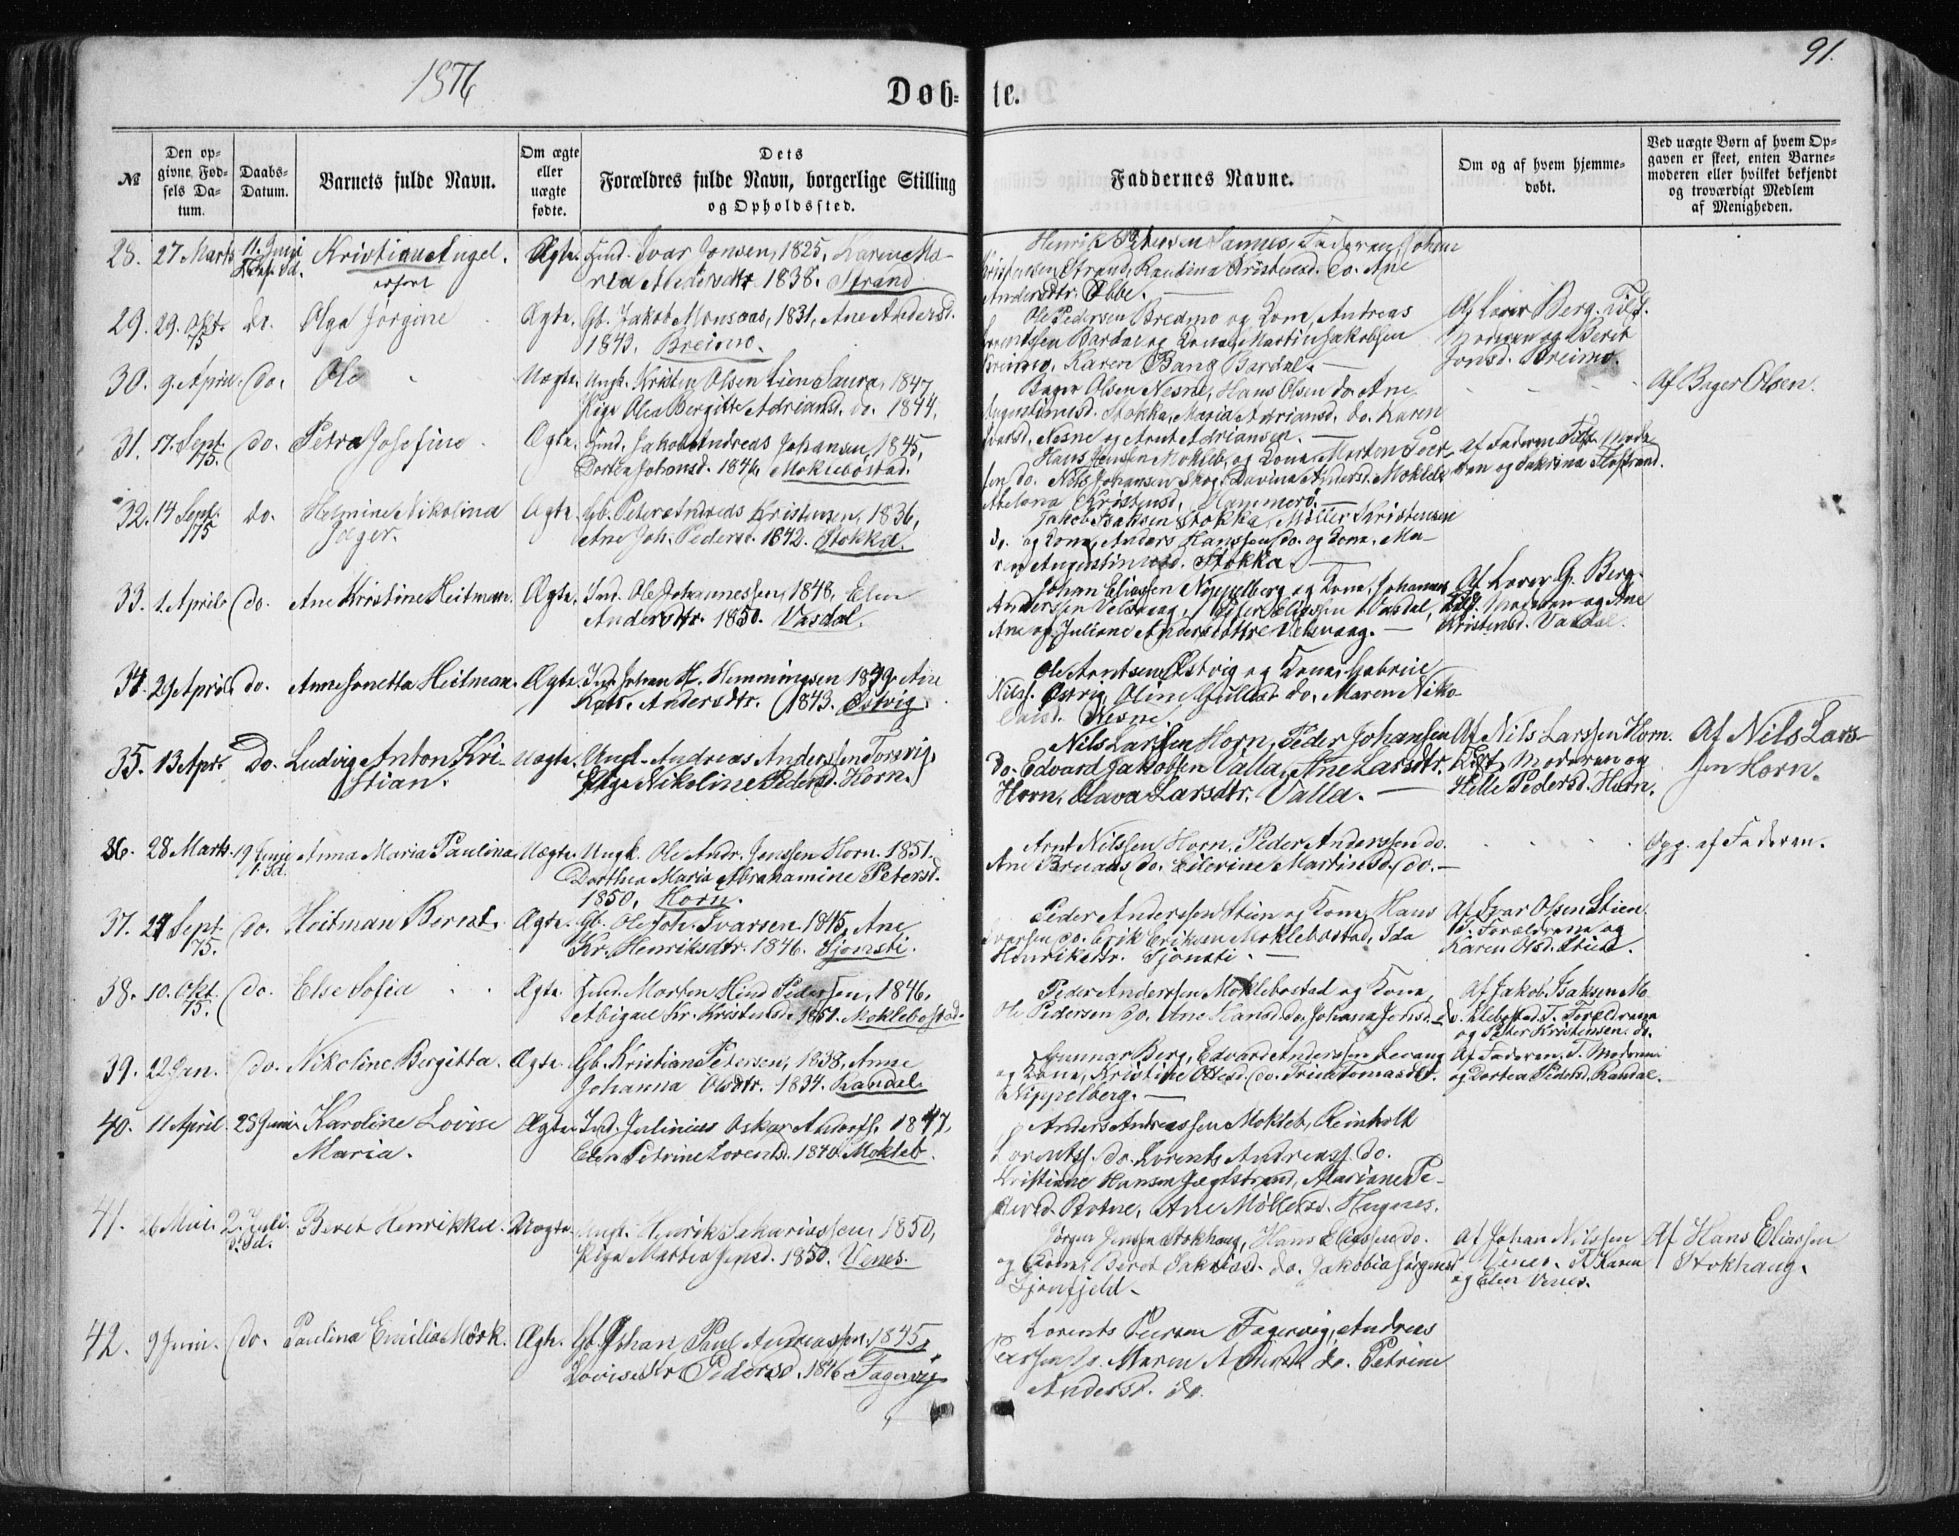 1876
91.
Døb-
te.
№
Den op-
givne Fød-
sels Da-
tum.
Daabs-
Datum.
Barnets fulde Navn.
Om ægte
eller
uægte
fødte.
Dets
Forældres fulde Navn, borgerlige Stilling
og Opholdssted.
Faddernes Navne.
Om og af hvem hjemme-
døbt.
Ved uægte Børn af hvem Op-
gaven er skeet, enten Barne-
moderen eller hvilket bekjendt
og troværdigt Medlem
af Menigheden.
28. 27 Marts 11. Juni Kristiane Angel. Ægte. Ivar Jonsen, 1825, Karen Ma-
1838. Strand
Henrik Petersen Sannes, Faderen, Johan
Strand, Do. Ane
Andersdtr. Ebbe.
29. 29. Okt. 75 do. Olga Jørgine Ægte. Gb. Jakob Monsaas, 1831, Ane Andersd.
1843. Breimo.
Ole Pedersen Bredmo og Kone, Andreas
Bardal og Kone, Martin Jakobsen
Breimo, Karen Bang Bardal.
Af Lærer Berg. Tilst.
Moderen og Berit
Jonsd. Breimo.
30. 9 April do. Ole Uægte. Ungk. Kristen Olsen Lien 1847,
Pige Olea Bergitte Adriansd. do. 1844.
Bager Olsen Nesne, Hans Olsen do. Ane
Augustinusd. Stokka, Maria Adriansd. do. Karen
Ivarsd. Nesne og Arnt Adriansen.
Af Bager Olsen.
31. 17. Sept. 75. do. Petra Josefine Ægte. Ind. Jakob Andreas Johansen, 1845,
Dortea Johansd. 1846, Moklebostad.
Hans Jensen Mokleb. og Kone, Morten Peter-
sen do. Nils Johansen Skog, Davina Andersd. Mokleb.
Kristensd. Hammerø.
Af Faderen. Tilst. Mode-
ren og Sakrina
32. 14 Sept. 75 do. Helmine Nikolina
Jeger.
Ægte. Gb. Peter Andreas Kristensen, 1836,
Ane Joh. Pedersd. 1842. Stokka.
Jakob Isaksen Stokka, Møller Kristensen
do. og Kone, Anders Hanssen do. og Kone, Ma-
ren Augustinusd. Stokka.
33. 1. April do. Ane Kristine Heitman. Ægte. Ind. Ole Johannessen, 1848, Elen
Andersdtr. 1850. Vasdal.
Johan Eliassen Nippelberg og Kone, Johannes
Anderssen Velsvaag, Peter Eliassen Vasdal,
Ane og Juliane Andersdøttre Velsvaag.
Af Lærer G. Berg.
Tilst. Moderen og Ane
Kristensd. Vasdal.
34. 29 April do. Anne Jonetta Heitman. Ægte. Ind. Johan H. Hemmingsen 1839. Ane
Kat. Andersdtr. 1843. Østvig.
Ole Arntsen Østvig og Kone, Gabriel
Nils. Østvig, Oline do. Maren Niko-
laisd. Nesne.
35. 13 Apr. Do. Ludvig Anton Kri-
stian.
Uægte. Ungk. Andreas Anderssen Forsvig,
Pige Nikoline Pedersd. Horn.
Nils Larssen Horn, Peder Johansen
do. Edvard Jakobsen Valla, Ane Larsdtr.
Horn, Olava Larsdtr. Valla.
Af Nils Larssen Horn.
Tilst. Moderen og
Helle Pedersd. Horn.
Af Nils Lars-
sen Horn.
36. 28 Marts. 19 Juni Anna Maria Paulina Uægte. Ungk. Ole Andr. Jenssen Horn. 1851.
Dorthea Maria Abrahamine Petersd.
1850, Horn.
Arnt Nilssen Horn, Peder Anderssen do.
Ane do. Eilerine Martinsd. do.
Opg. af Faderen.
37. 27 Sept. 75. do. Heitman Berent. Ægte. Gb. Ole Joh. Ivarsen. 1845, Ane
Kr. Henriksdtr. 1846. Sjonsti.
Peder Anderssen Stien og Kone, Hans
Ivarsen do. Erik Eriksen Moklebostad, Ida
Henriksdtr. Sjonsti.
Af Ivar Olsen Stien.
T. Forældrene og
Karen Olsd. Stien.
38. 10. Okt. 75. do. Else Sofia Ægte. Ind. Morten Hind Pedersen, 1846,
Abigael Kr. Kristensd. 1851. Moklebostad.
Peder Anderssen Moklebostad og Kone,
Ole Pedersen do. Ane Hansd. do. Johana Jensd. do.
Af Jakob Isaksen Mo-
klebostad. T. Forældrene
og Peter Kristensen do.
39. 22 Jan. do. Nikoline Bergitta. Ægte. Gb. Kristian Petersen, 1838, Anne
Johanna Olsdtr. 1834. Randal.
Gunnar Berg, Edvard Anderssen Levang
og Kone, Kristine Ottesd. do.
Nippelberg.
Af Faderen. T. Moderen
og Dortea Pedersd. Randal.
40. 11 April. 25 Juni Karoline Lovise
Maria.
Ægte. Ind. Julinius Oskar 1847,
Elen Petrine Lorentsd. 1840. Mokleb.
Anders Andreassen Mokleb, Reinholt
Lorentss. do. Lorents Andreass. do.
Kristiane Hansen Jægtstrand, Mariane Pe-
Ane Møllersd. Hugnes.
41. 26 Mai. 2. Juli Beret Henrikka. Uægte. Ungk. Henrik Sakariassen, 1850,
Pige Martea Jensd. 1850. Venes.
Jørgen Jensen Stokhaug, Hans Eliassen do.
og Kone, Beret Sakriasd. do. Jakobia Jørgensd.
Sjonfjeld.
Af Johan Nilssen
Venes. T. Karen
og Elen Venes.
Af Hans Eliassen
Stokhaug.
42. 9 Juni. do. Paulina Emilia Mørk. Ægte. Gb. Johan Paul Andreassen, 1845,
Lovise Pedersd. 1846. Fagervig
Lorents Fagervig, Andreas
do. Maren do. Petrine
Andersd. do.